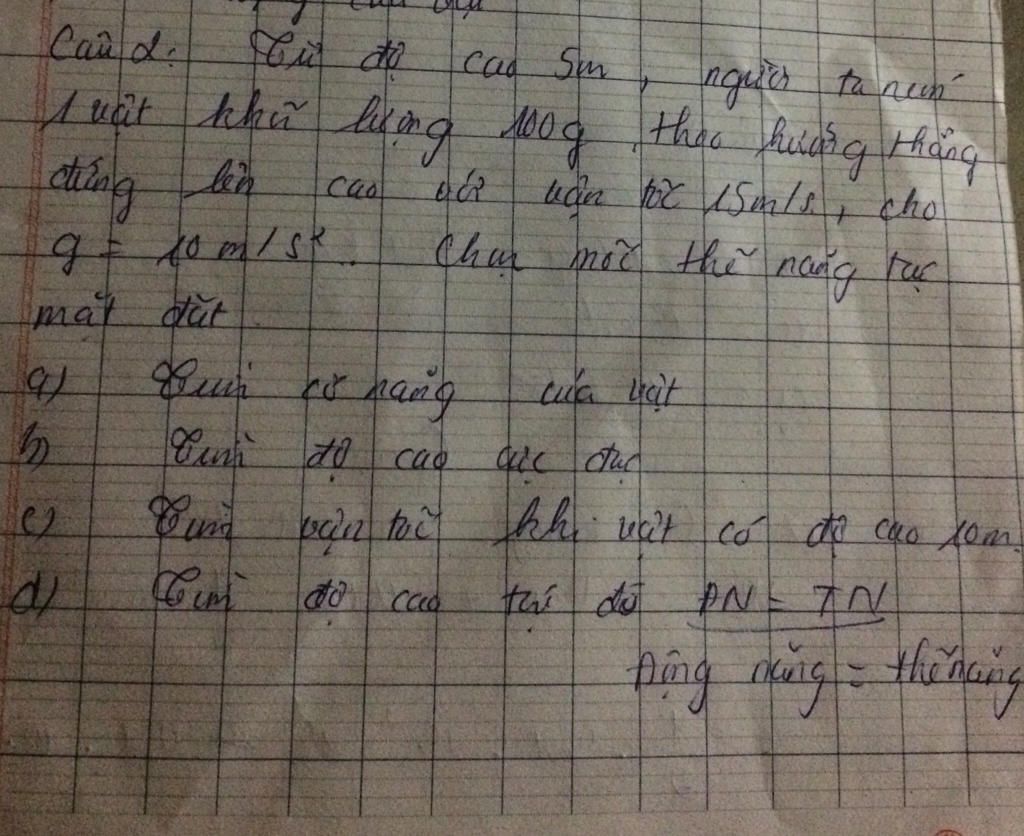 Câu 2: Từ độ cao 5m, người ta ném
1 vật khối lượng 100g, theo hướng thẳng
đứng lên cao với vận tốc 15m/s, cho
g = 10 m/s². Chọn mốc thế năng tại
mặt đất
a) Tìm cơ năng của vật
b) Tìm độ cao cực đại
c) Tìm vận tốc khi vật có độ cao 10m.
d) Tìm độ cao tại đó ĐN = TN
Động năng = thế năng